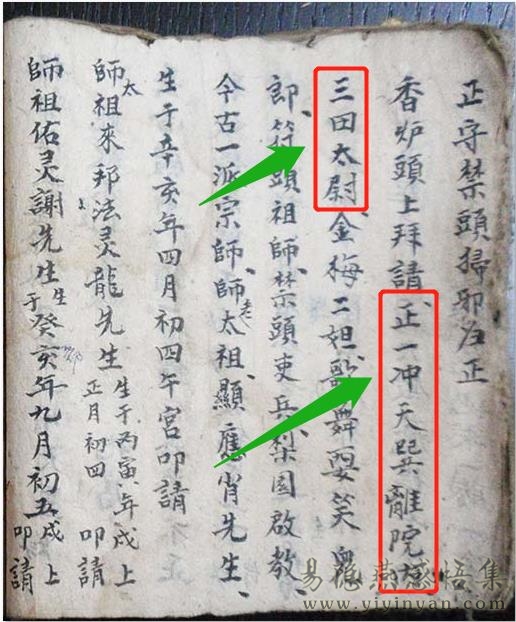 正守禁頭掃邪归正
香炉頭上拜請、正一冲天巽離院
三田太尉、金梅二妲歌舞耍笑
郎、符頭祖師、禁頭吏兵、梨園啟教、
今古一派宗師、師老太祖、顯應肖先生、
生于辛亥年四月初四午宫叩請
師太祖來邦法灵龍先生生于丙寅年正月初四戌上叩請
師祖佑灵謝先生生于癸亥年九月初五戌上叩請
易隐燕感悟集
www.yiyinyan.com